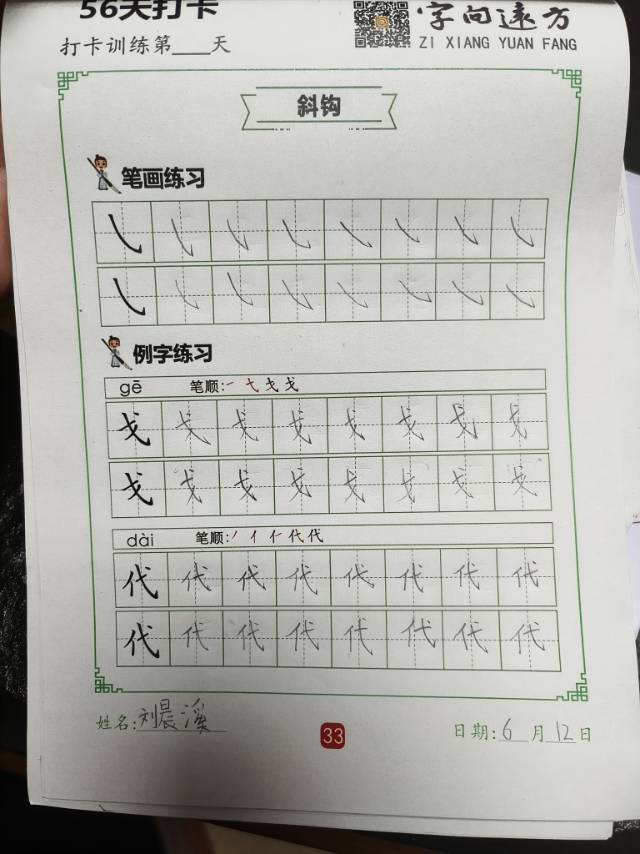 56天打卡
字向远方
打卡训练第____天
ZI XIANG YUAN FANG
斜钩
笔画练习
例字练习
gē 笔顺:㇐ 弋 戈 戈
戈 戈 戈 戈 戈 戈 戈 戈
戈 戈 戈 戈 戈 戈 戈 戈
dài 笔顺:丿 亻 仁 代 代
代 代 代 代 代 代 代 代
代 代 代 代 代 代 代 代
姓名:刘晨溪
33
日期:6月12日